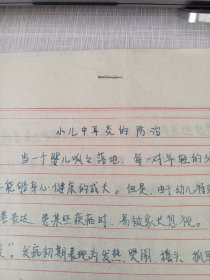 小儿中耳炎的防治
当一个婴儿呱呱落地，每一对年轻的父
能够身心健康的成长。但是，由于幼儿
善表达，患某些疾病时，易被家长忽视。
发病初期表现为发热，哭闹，摇头，抓耳